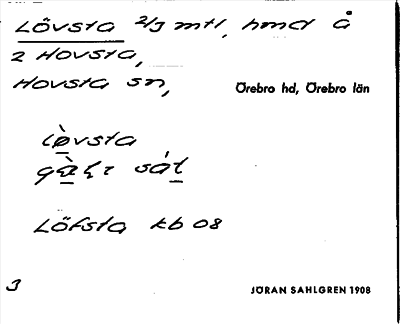 Lövsta 2/3 mtl, hmd å
2 Hovsta,
Hovsta sn,
Örebro hd, Örebro län
lø̀vsta
sát
Löfsta kb 08
3
JÖRAN SAHLGREN 1908